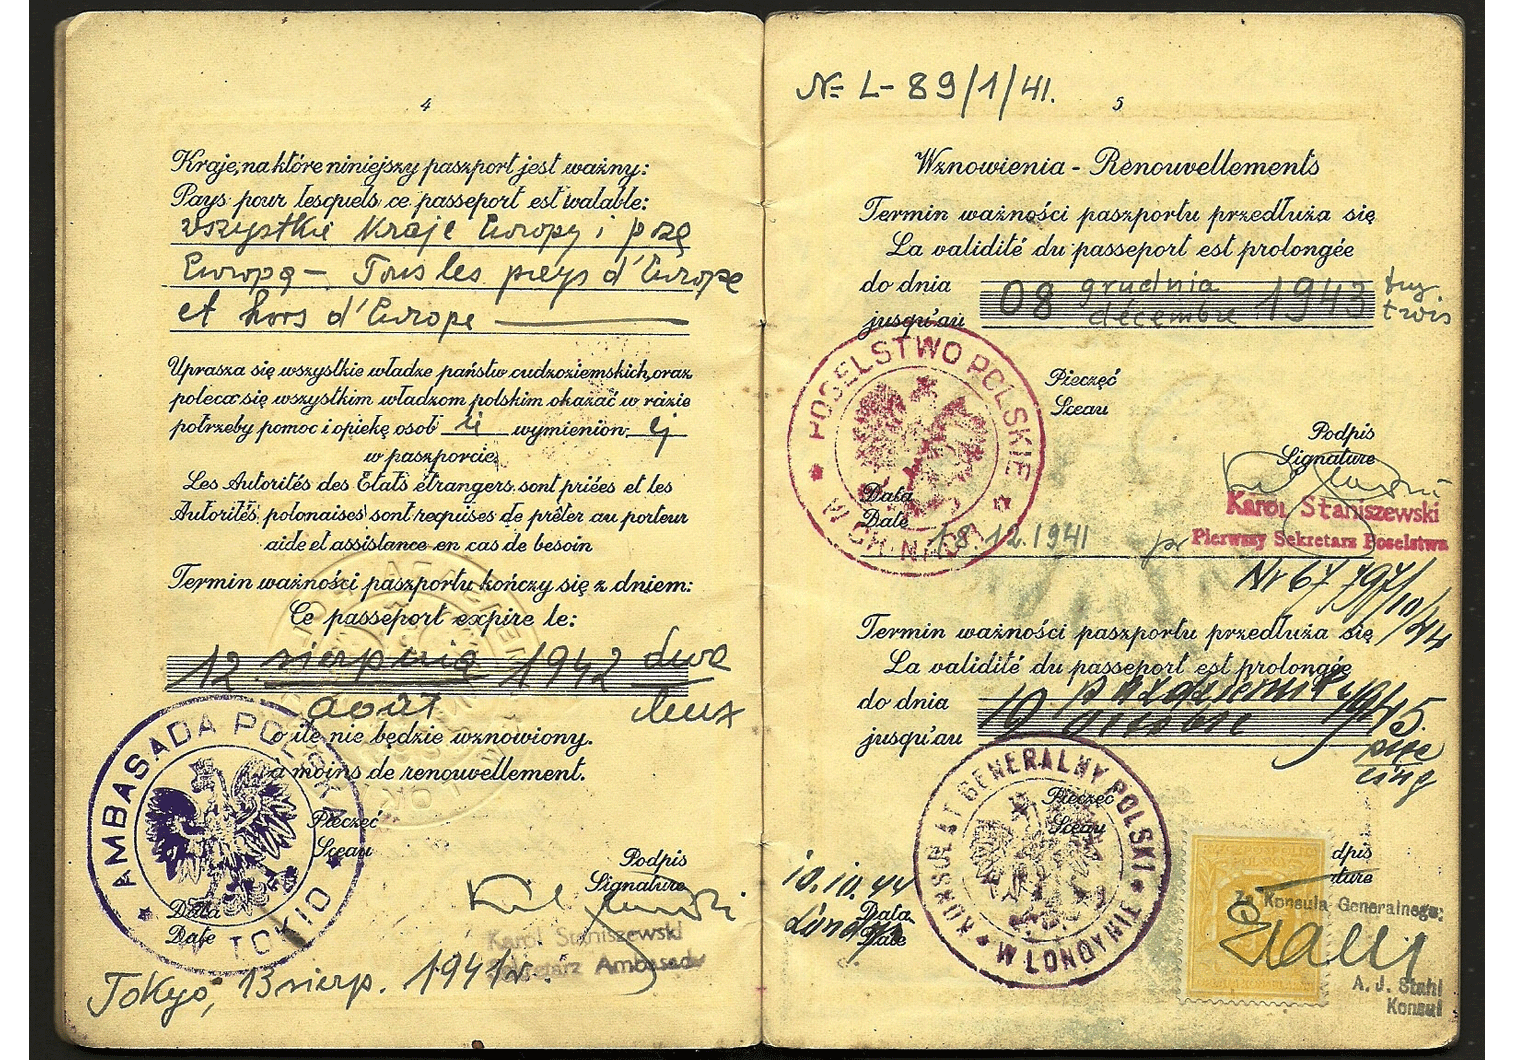 4
Kraje, na które niniejszy paszport jest ważny:
Pays pour lesquels ce passeport est walable:
wszystkie Kraje Europy i pozą
Europą — Tous les pays d'Europe
et hors d'Europe
Uprasza się wszystkie władze państw cudzoziemskich, oraz
poleca się wszystkim władzom polskim okazać w razie
potrzeby pomoc i opiekę osob ie wymienion ej
w paszporcie.
Les Autorités des États étrangers sont priées et les
Autorités polonaises sont requises de prêter au porteur
aide et assistance en cas de besoin
Termin ważności paszportu kończy się z dniem:
Ce passeport expire le:
12 sierpnia 1942 dwa
août deux
o ile nie będzie wznowiony.
a moins de renouvellement.
AMBASADA POLSKA W TOKIO
Pieczęć
Sceau
Podpis
Signature
Data
Date
Karol Staniszewski
Sekretarz Ambasady
Tokyo, 13 sierp. 1941 r.
№ L-89/1/41.
5
Wznowienia - Renouvellements
Termin ważności paszportu przedłuża się
La validité du passeport est prolongée
do dnia 08 grudnia 1943 trzy
jusqu'au décembre trois
POSELSTWO POLSKIE W CHINACH
Pieczęć
Sceau
Podpis
Signature
Data
Date 18.12.1941
Karol Staniszewski
Pierwszy Sekretarz Poselstwa
Nr 67797/10/44
Termin ważności paszportu przedłuża się
La validité du passeport est prolongée
do dnia 10 października 1945.
jusqu'au octobre pięć
cinq
KONSULAT GENERALNY POLSKI W LONDYNIE
Pieczęć
Sceau
10.10.44
Londyn
Data
Date
dpis
ture
Za Konsula Generalnego:
A. J. Stahl
Konsul